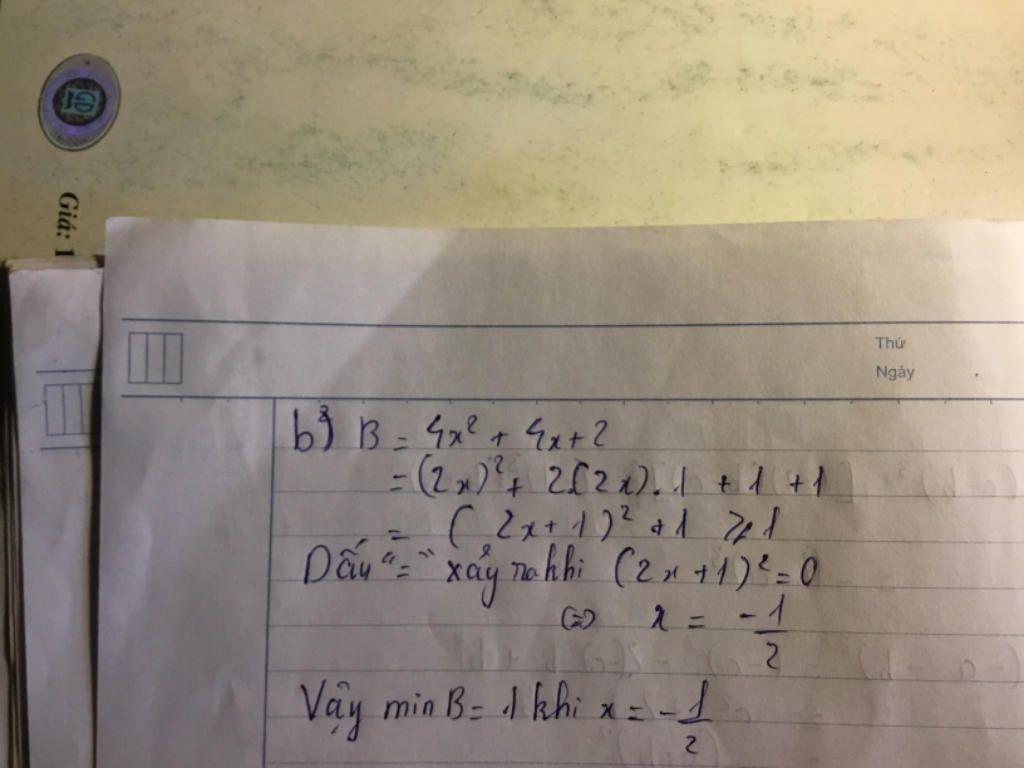 Giá: 1
Thứ
Ngày
b) B = 4x² + 4x + 2
= (2x)² + 2.(2x).1 + 1 + 1
= (2x + 1)² + 1 ⩾ 1
Dấu "=" xảy ra khi (2x + 1)² = 0
⇔ x = -1/2
Vậy min B = 1 khi x = -1/2